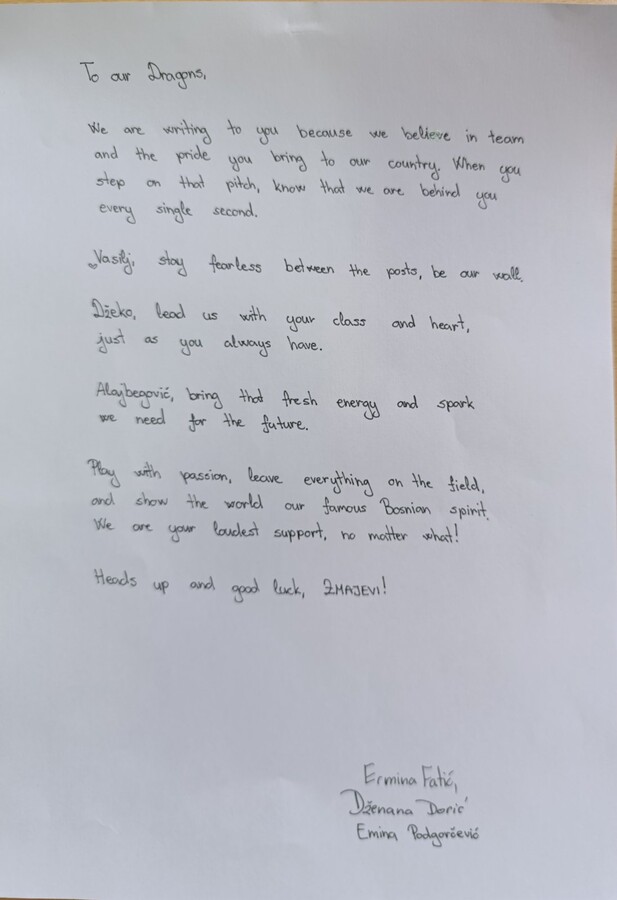 To our Dragons,
We are writing to you because we believe in team
and the pride you bring to our country. When you
step on that pitch, know that we are behind you
every single second.
Vasilj, stay fearless between the posts, be our wall.
Džeko, lead us with your class and heart,
just as you always have.
Alajbegović, bring that fresh energy and spark
we need for the future.
Play with passion, leave everything on the field,
and show the world our famous Bosnian spirit.
We are your loudest support, no matter what!
Heads up and good luck, ZMAJEVI!
Ermina Fatić,
Dženana Dorić
Emina Podgorčević